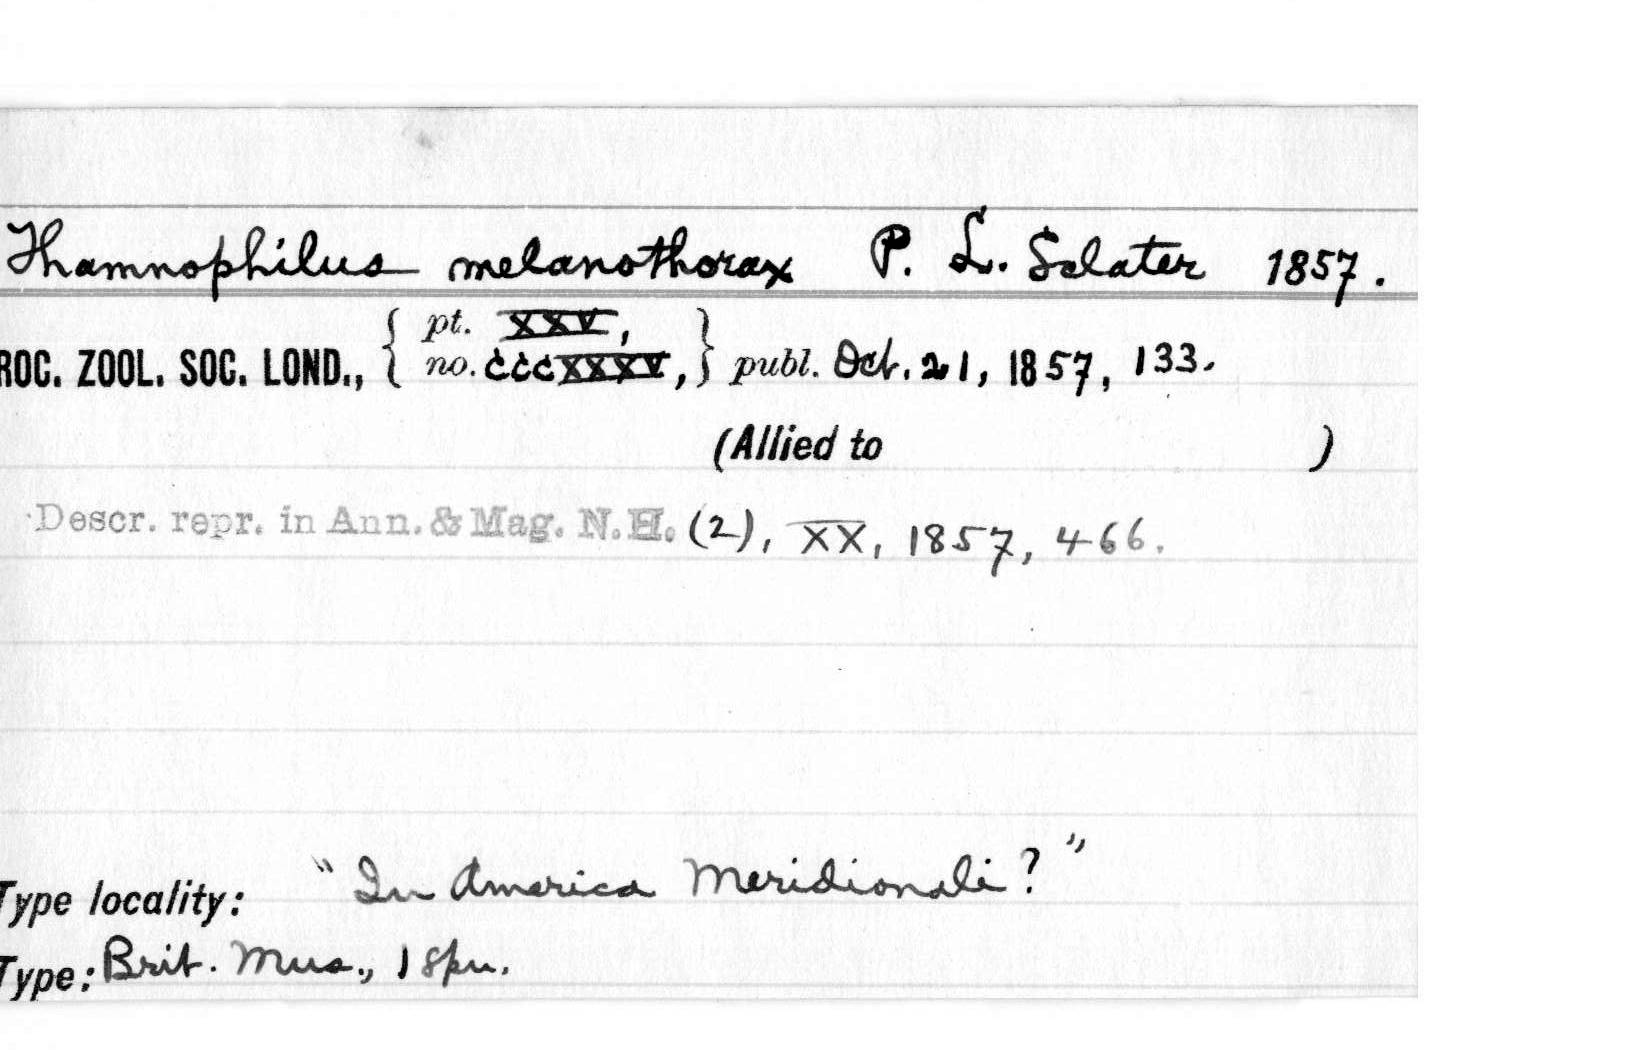 Thamnophilus melanothorax P. L. Sclater 1857.
ROC. ZOOL. SOC. LOND., { pt. XXV, no. cccxxxv, } publ. Oct. 21, 1857, 133.
(Allied to )
Descr. repr. in Ann. & Mag. N.H. (2), XX, 1857, 466.
Type locality: "In America Meridionali?"
Type: Brit. Mus., 1 spn.